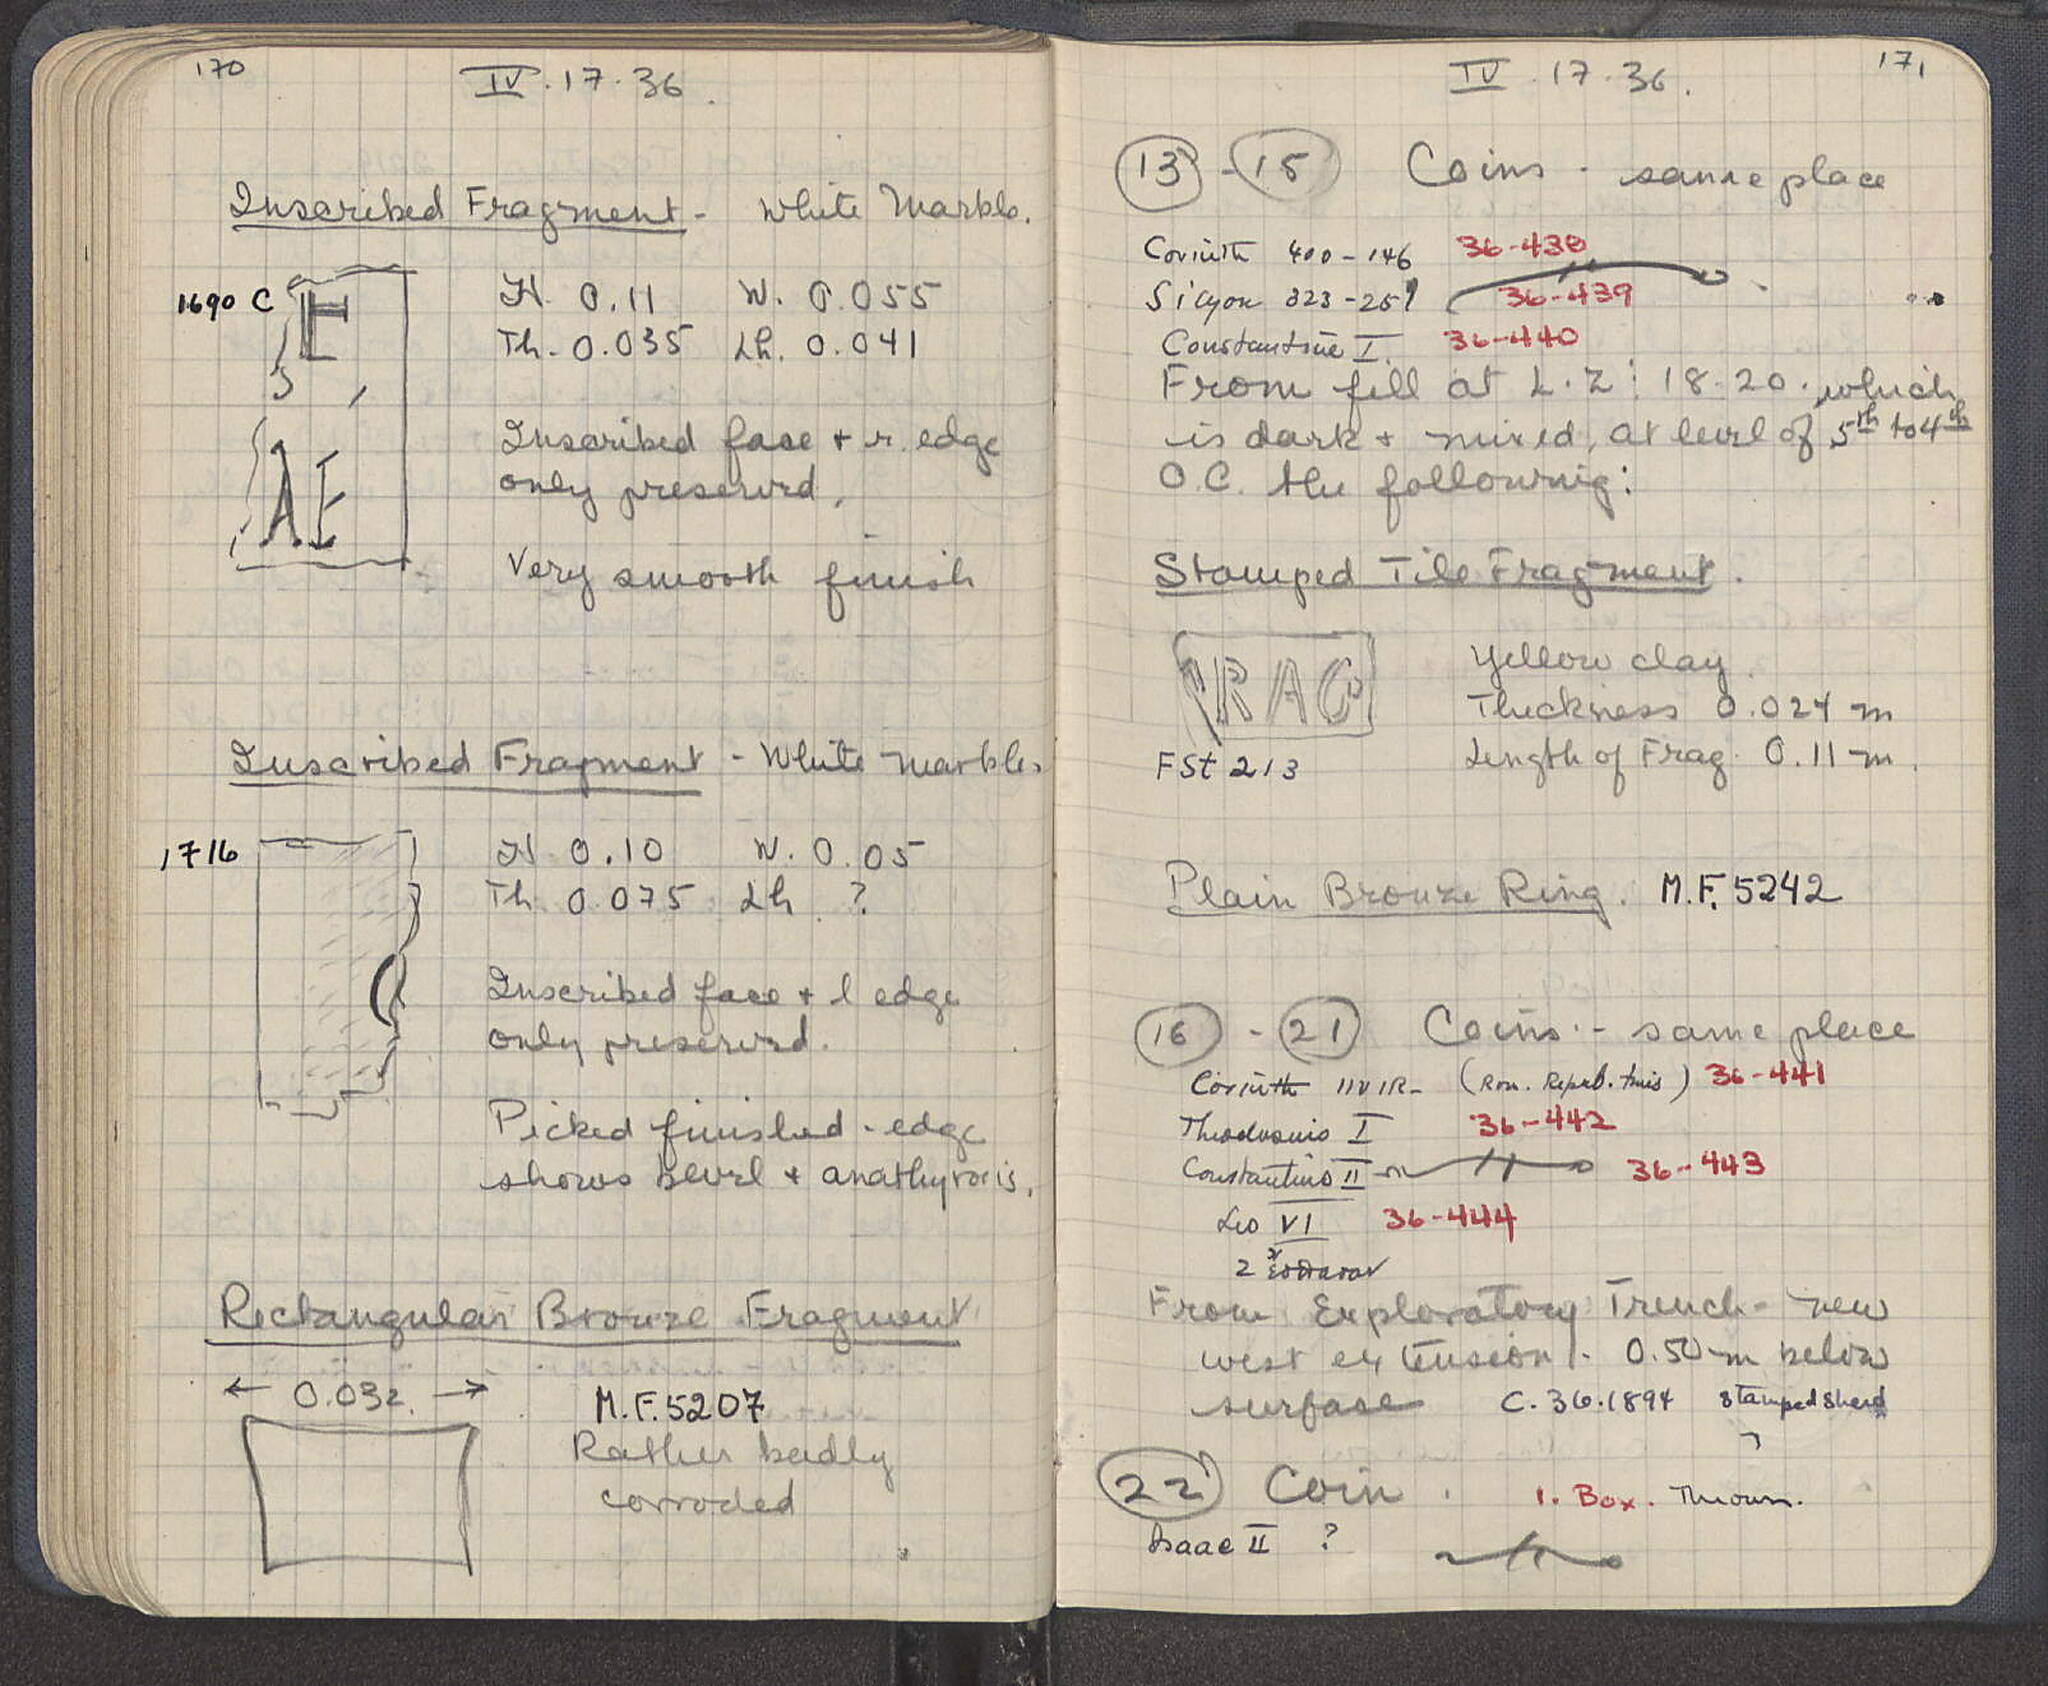 170
IV . 17 . 36 .
Inscribed Fragment - White Marble.
1690 C
E
AE
H. 0.11 W. 0.055
Th. 0.035 Lh. 0.041
Inscribed face + r. edge
only preserved.
Very smooth finish
Inscribed Fragment - White Marble.
1716
H 0.10 W. 0.05
Th. 0.075 Lh. ?
Inscribed face + l edge
only preserved.
Picked finished - edge
shows bevel + anathyrosis.
Rectangular Bronze Fragment
← 0.032 →
M.F. 5207
Rather badly
corroded
171
IV . 17 . 36 .
13 - 15 Coins - same place
Corinth 400 - 146 36-438
Sicyon 323-251 36-439
Constantine I. 36-440
From fill at L.Z: 18-20. which
is dark + mixed, at level of 5th to 4th
O.C. the following:
Stamped Tile Fragment.
RAC
FSt 213
Yellow clay
Thickness 0.024 m
Length of Frag. 0.11 m.
Plain Bronze Ring. M.F. 5242
16 - 21 Coins - same place
Corinth IIVIR- (Rom. Repub. ) 36-441
Theodosius I 36-442
Constantius II 36-443
Leo VI 36-444
2
From Exploratory Trench - new
west extension - 0.50 m below
surface C. 36.1894 Stamped Sherd
22 Coin. 1. Box. Thrown.
Isaac II ?